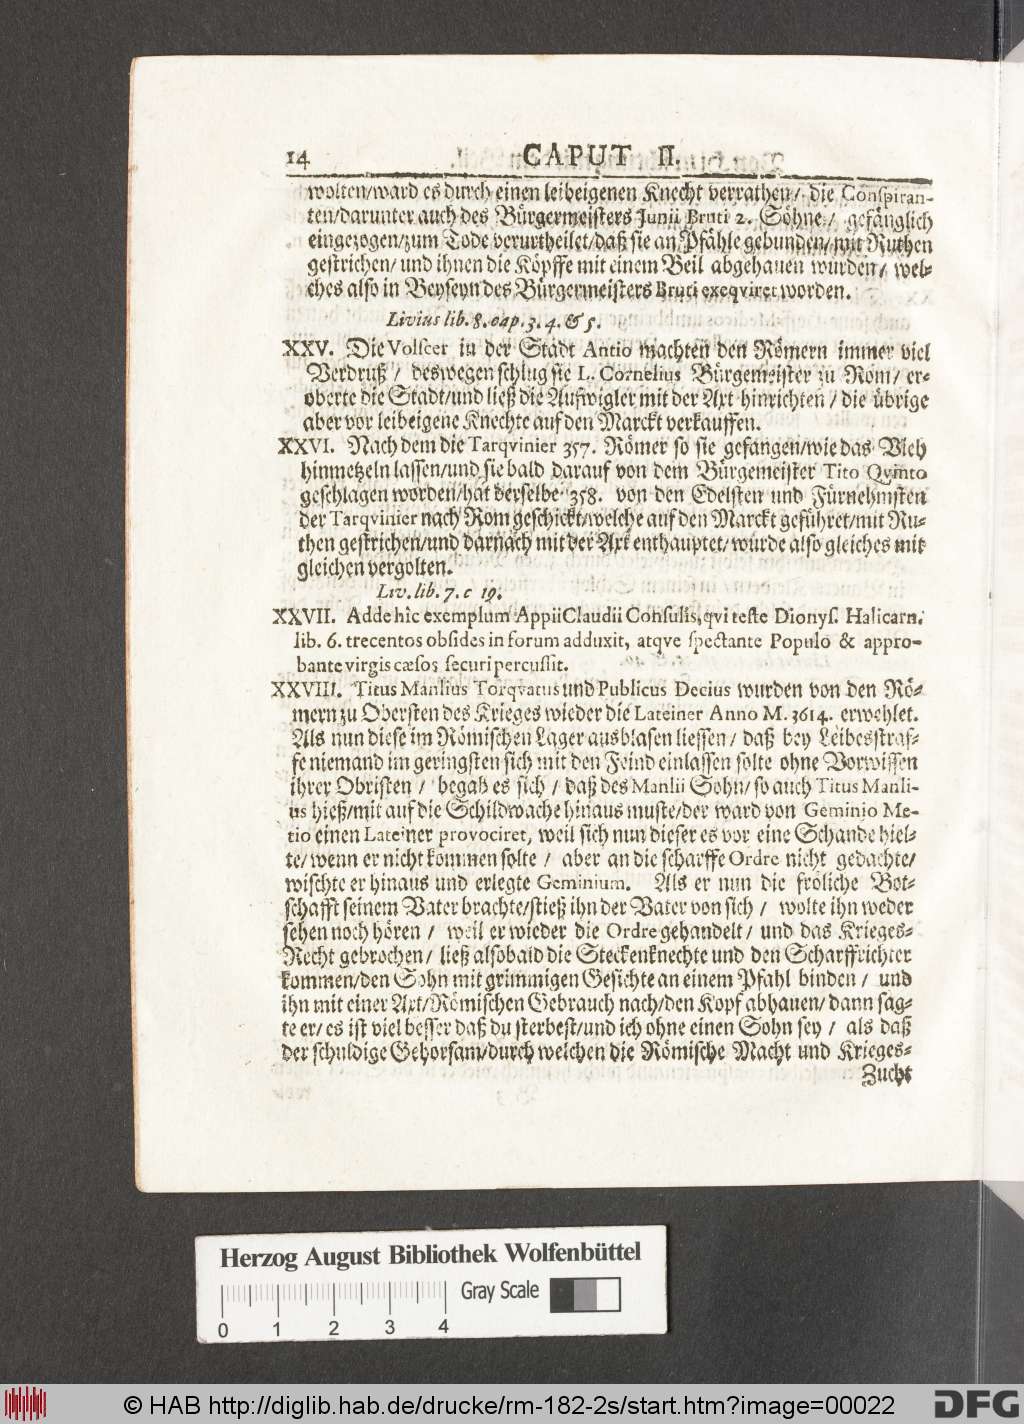 14 CAPUT II.
wolten/ward es durch einen leibeigenen Knecht verrathen/ die Conspiran-
ten/darunter auch des Bürgermeisters Junii Bruti 2. Söhne/ gefänglich
eingezogen/zum Tode verurtheilet/daß sie an Pfähle gebunden/mit Ruthen
gestrichen/ und ihnen die Köpffe mit einem Beil abgehauen wurden/ wel-
ches also in Beyseyn des Bürgermeisters Bruti exeqviret worden.
Livius lib. 8. cap. 3. 4. & 5.
XXV. Die Volscer in der Stadt Antio machten den Römern immer viel
Verdruß / deswegen schlug sie L. Cornelius Bürgemeister zu Rom/ er-
oberte die Stadt/und ließ die Aufwigler mit der Axt hinrichten / die übrige
aber vor leibeigene Knechte auf den Marckt verkauffen.
XXVI. Nach dem die Tarqvinier 357. Römer so sie gefangen/wie das Vieh
hinmetzeln lassen/und sie bald darauf von dem Bürgemeister Tito Qvinto
geschlagen worden/hat derselbe 358. von den Edelsten und Fürnehmsten
der Tarqvinier nach Rom geschickt/welche auf den Marckt geführet/mit Ru-
then gestrichen/und darnach mit der Axt enthauptet/wurde also gleiches mit
gleichen vergolten.
Liv. lib. 7. c 19.
XXVII. Adde hîc exemplum Appii Claudii Consulis, qvi teste Dionys. Halicarn.
lib. 6. trecentos obsides in forum adduxit, atqve spectante Populo & appro-
bante virgis cæsos securi percussit.
XXVIII. Titus Manlius Torqvatus und Publicus Decius wurden von den Rö-
mern zu Obersten des Krieges wieder die Lateiner Anno M. 3614. erwehlet.
Als nun diese im Römischen Lager ausblasen liessen/ daß bey Leibesstraf-
fe niemand im geringsten sich mit den Feind einlassen solte ohne Vorwissen
ihrer Obristen / begab es sich / daß des Manlii Sohn/ so auch Titus Manli-
us hieß/mit auf die Schildwache hinaus muste/der ward von Geminio Me-
tio einen Lateiner provociret, weil sich nun dieser es vor eine Schande hiel-
te/wenn er nicht kommen solte / aber an die scharffe Ordre nicht gedachte/
wischte er hinaus und erlegte Geminium. Als er nun die fröliche Bot-
schafft seinem Vater brachte/stieß ihn der Vater von sich / wolte ihn weder
sehen noch hören / weil er wieder die Ordre gehandelt/ und das Krieges-
Recht gebrochen/ ließ alsobald die Steckenknechte und den Scharffrichter
kommen/den Sohn mit grimmigen Gesichte an einem Pfahl binden / und
ihn mit einer Axt/Römischen Gebrauch nach/den Kopf abhauen/ dann sag-
te er/ es ist viel besser daß du sterbest/und ich ohne einen Sohn sey / als daß
der schuldige Gehorsam/durch welchen die Römische Macht und Krieges-
Zucht
Herzog August Bibliothek Wolfenbüttel
Gray Scale
0 1 2 3 4
© HAB http://diglib.hab.de/drucke/rm-182-2s/start.htm?image=00022
DFG